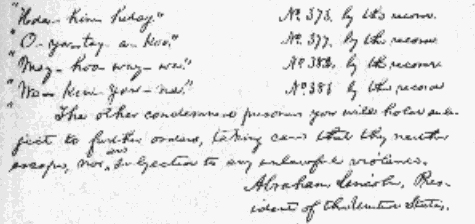 "Hda-hin-hday." No. 373. by the record.
"O-ya-tay-a-koo." No. 377. by the record.
"May-hoo-way-wa." No. 382. by the record.
"Wa-kin-yan-na." No. 383 by the record
" The other condemned prisoners you will hold sub-
ject to further orders, taking care that they neither
escape, nor are subjection to any unlawful violence.
Abraham Lincoln, Pres-
ident of the United States.